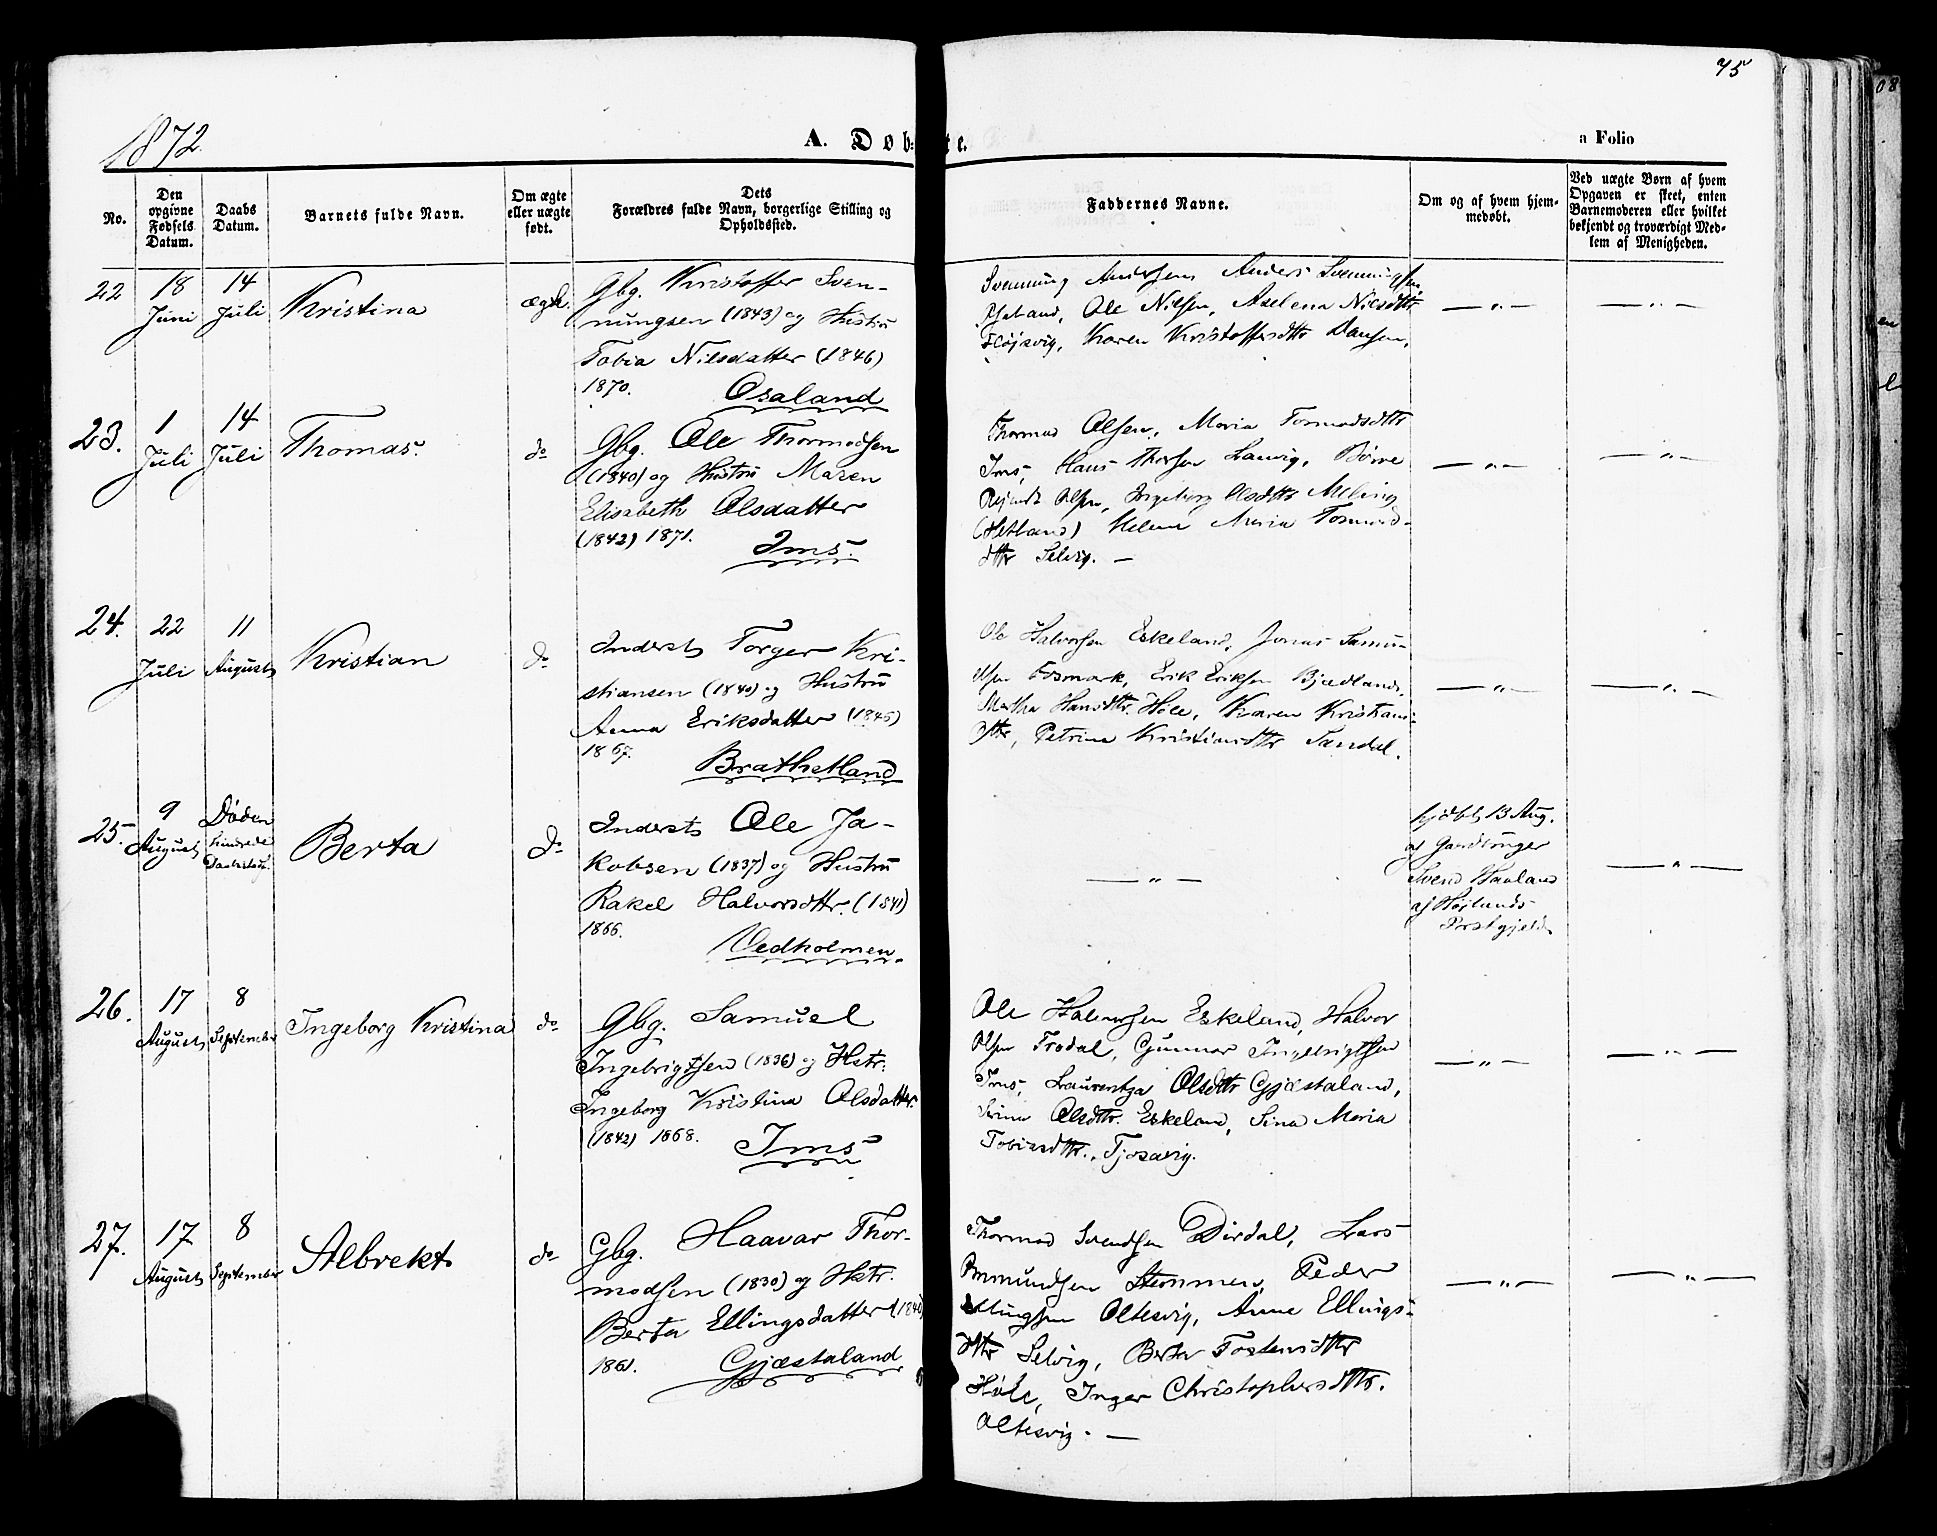 75
1872.
A. Døbte.
a Folio
No.
Den opgivne Fødsels Datum.
Daabs Datum.
Barnets fulde Navn.
Om ægte eller uægte født.
Dets Forældres fulde Navn, borgerlige Stilling og Opholdssted.
Faddernes Navne.
Om og af hvem hjemmedøbt.
Ved uægte Børn af hvem Opgaven er skeet, enten Barnemoderen eller hvilket bekjendt og troværdigt Medlem af Menigheden.
22
18 Juni
14 Juli
Kristina
ægte.
Gbg. Kristoffer Sven-
nungsen (1843) og Hustru
Tobia Nilsdatter (1846)
1870. Osaland
Svennung Andersen, Anders Svenningsen
Ole Nilsen, Axelena Nilsdttr
Karen Kristoffersdttr
— „ —
— „ —
23.
1 Juli
14 Juli
Thomas.
do
Gbg. Ole Thormodsen
(1840) og Hustru Maren
Elisabeth Olsdatter
(1842) 1871. Ims.
Thormod Olsen, Maria Tormodsdttr
Ims, Hans Thorsen Børre
Olsen, Ingeborg Olsdttr Meling
(Hetland) Helene Maria Tormods-
dttr Selvig. —
— „ —
— „ —
24.
22 Juli
11 August
Kristian
do
Inderst Torger Kri-
stiansen (1840) og Hustru
Anna Eriksdatter (1845)
1867. Brathetland
Ole Halvorsen Eskeland, Jonas Samu-
elsen Fosmark, Erik Eriksen Bjædland,
Martha Hansdttr. Høle, Karen Kristians-
dttr, Petrine Kristiansdttr Sandal.
— „ —
— „ —
25.
9 August
Døden
hindrede
Berta
do
Inderst Ole Ja-
kobsen (1837) og Hustru
Rakel Halvorsdttr. (1841)
1866. Vedholmen
— „ —
hjdbt 13 Aug.
af Gaardbruger
Svend Haaland
af Høilands
Prstgjeld
— „ —
26.
17 August
8 September
Ingeborg Kristina
do
Gbg. Samuel
Ingebrigtsen (1836) og Hstr.
Ingeborg Kristina Olsdatter
(1842) 1868. Ims
Ole Halvorsen Eskeland, Halvor
Olsen Frodal, Gunnar Ingebrigtsen
Ims, Laurentza Olsdttr Gjæstaland,
Serina Olsdttr. Eskeland, Sina Maria
Tobiasdttr., Tjosavig.
— „ —
— „ —
27.
17 August
8 September
Albrekt
do
Gbg. Haavar Thor-
modsen (1830) og Hstr.
Berta Ellingsdatter (1840)
1861. Gjæstaland
Thormod Svendsen Dirdal, Lars
Ommundsen Stemmen, Peder
Ellingsen Oltesvig, Anne Ellings-
dttr Selvig, Berta Tostensdttr
Høle, Inger Christophersdttr.
Oltesvig. —
— „ —
— „ —